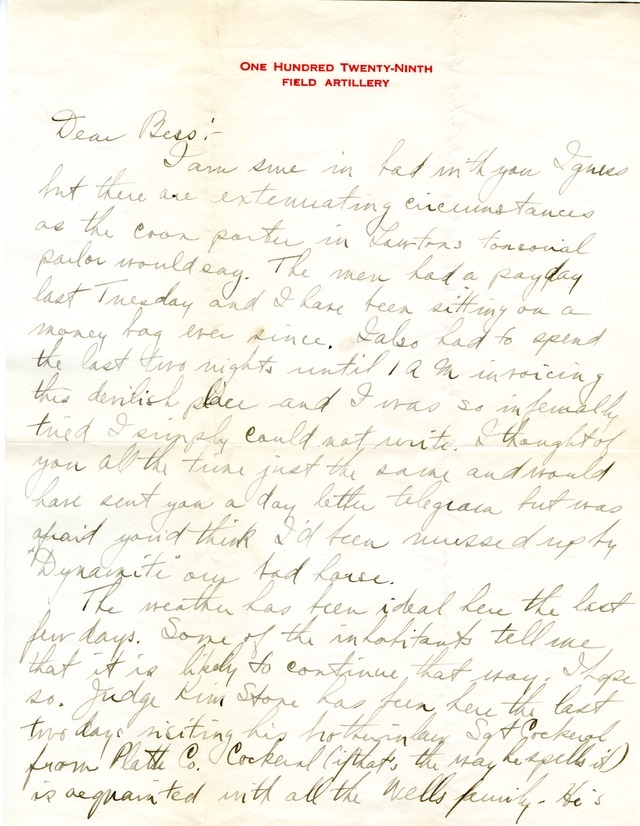 ONE HUNDRED TWENTY-NINTH
FIELD ARTILLERY
Dear Bess:-
I am sure in bad with you I guess
but there are extenuating circumstances
as the coon porter in Lawtons tonsorial
parlor would say. The men had a payday
last Tuesday and I have been sitting on a
money bag ever since. I also had to spend
the last two nights until 1 A M invoicing
this devilish place and I was so infernally
tired I simply could not write. I thought of
you all the time just the same and would
have sent you a day letter telegram but was
afraid you'd think I'd been mussed up by
"Dynamite" our bad horse.
The weather has been ideal here the last
few days. Some of the inhabitants tell me
that it is likely to continue that way. I hope
so. Judge Kim Stone has been here the last
two days visiting his brotherinlaw Sgt Cockerel
from Platte Co. Cockerel (if that's the way he spells it)
is acquainted with all the Wells family. He's